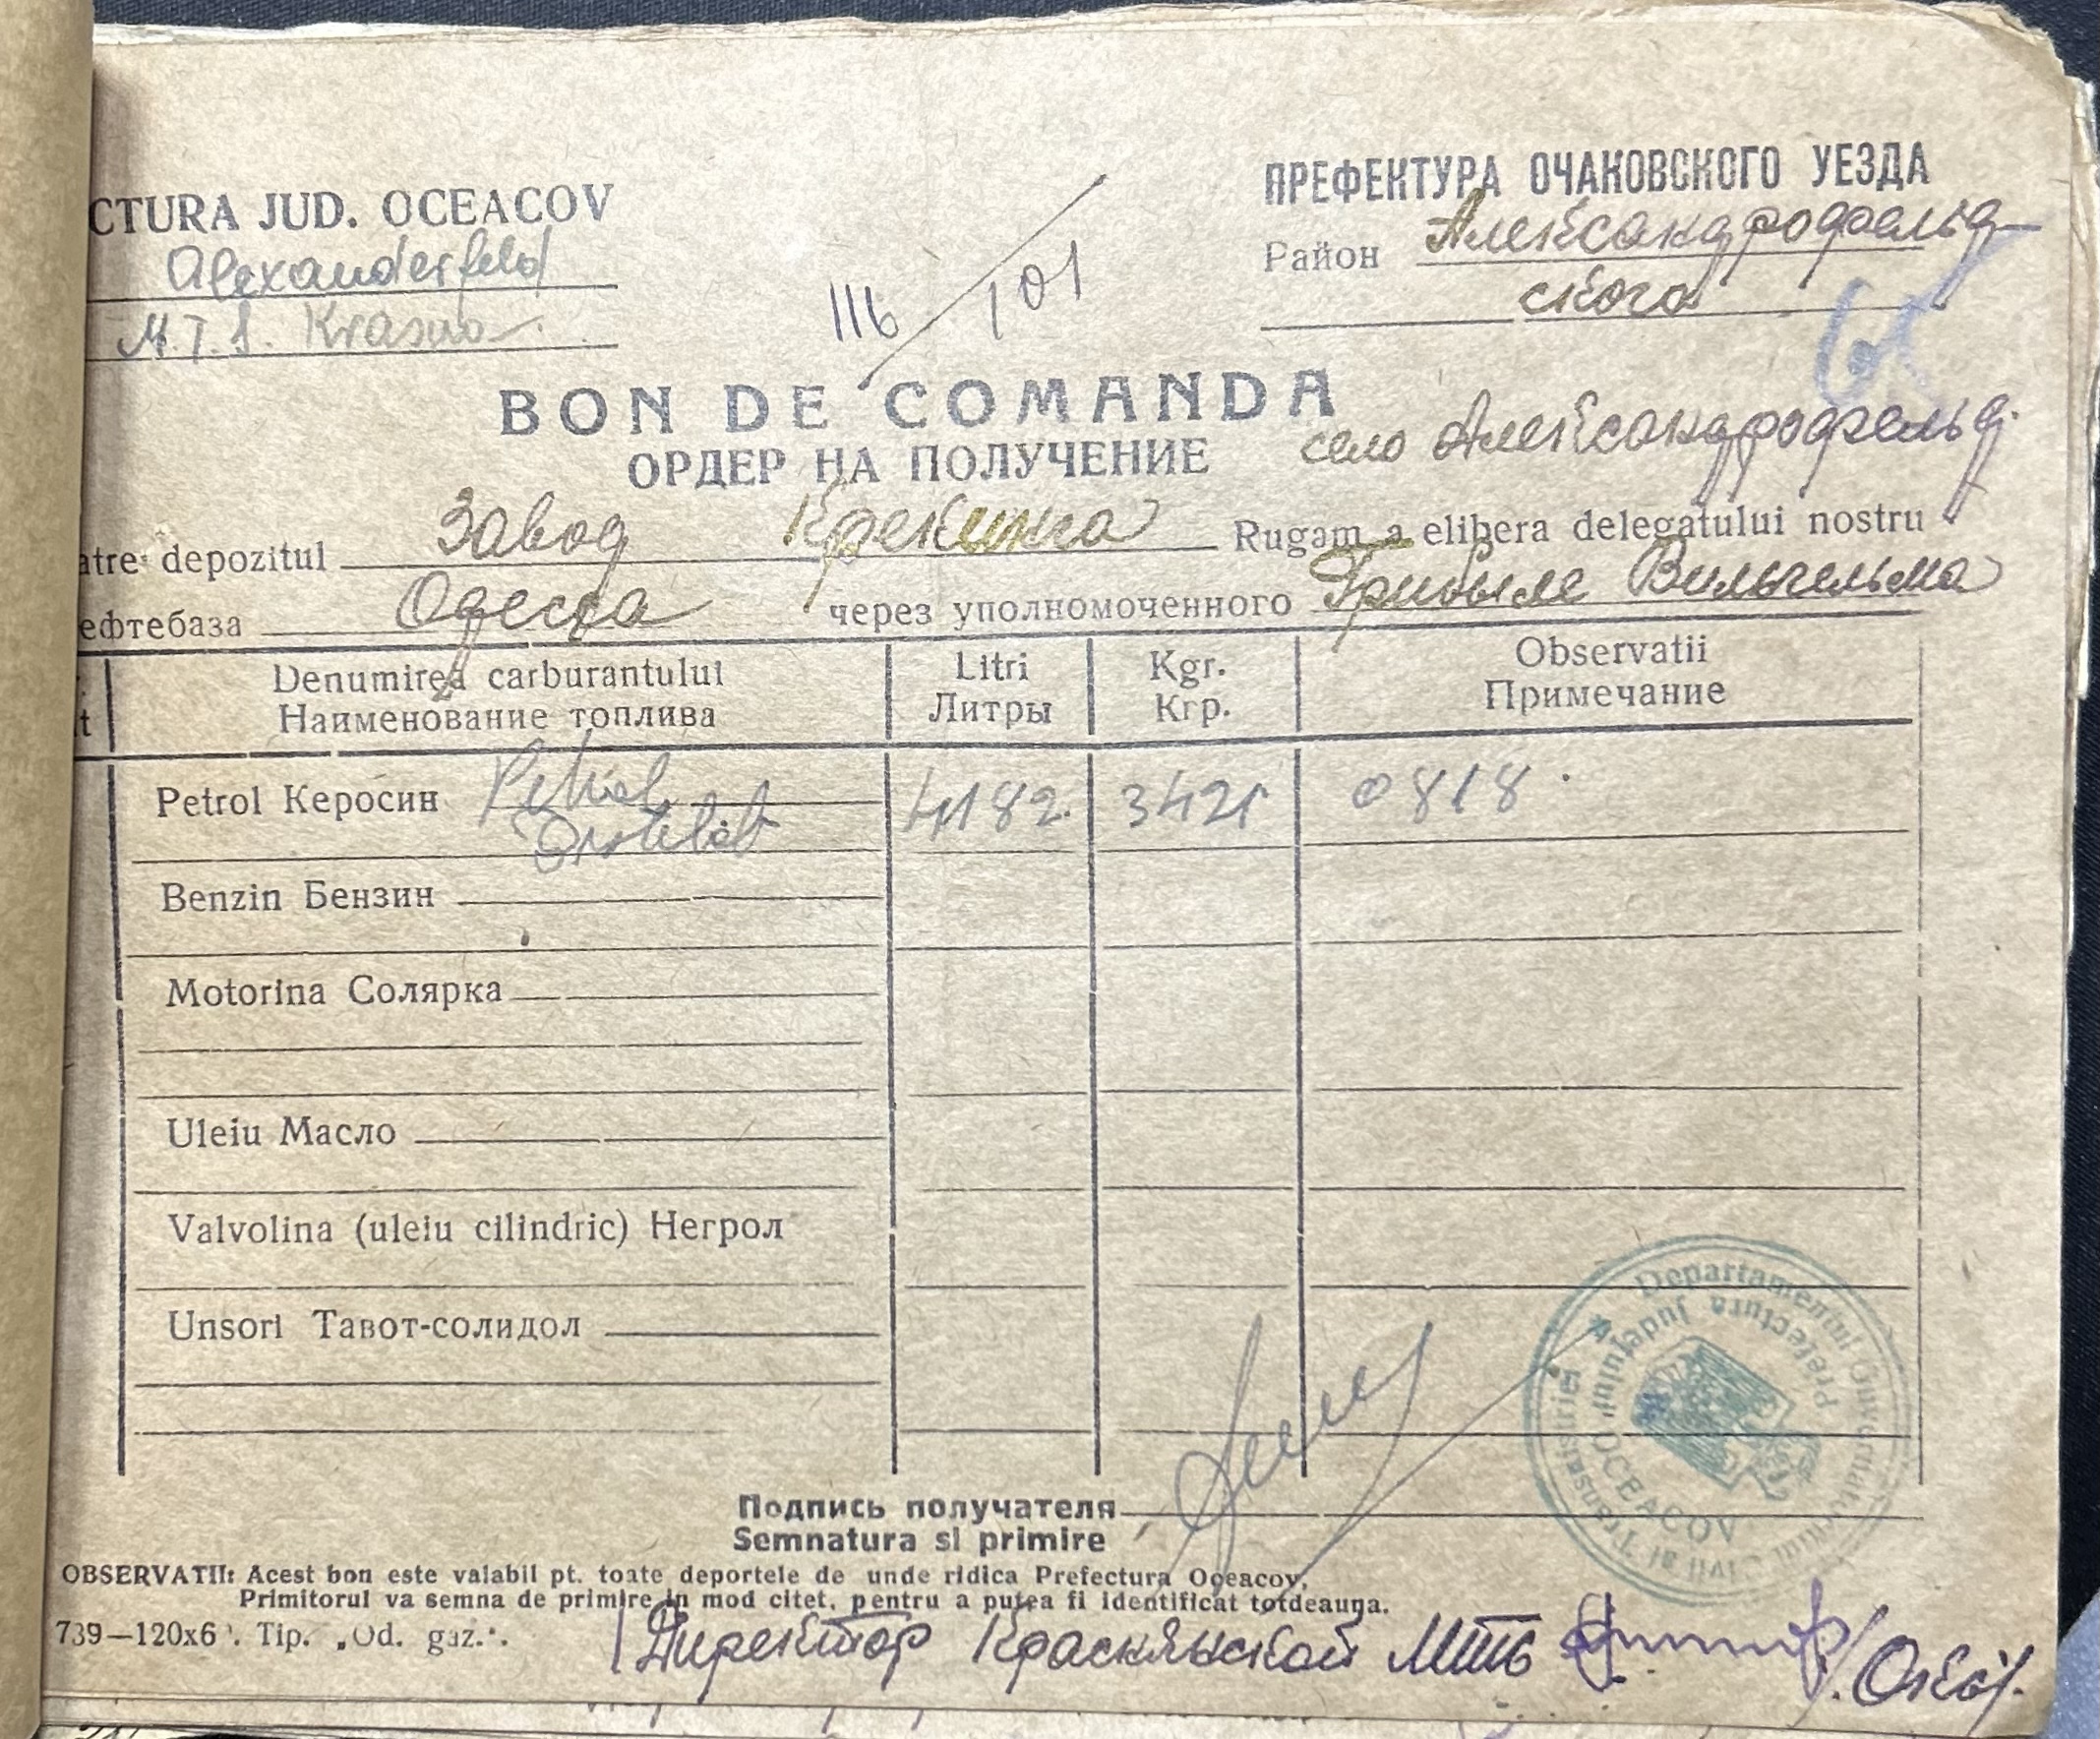 CTURA JUD. OCEACOV
Alexanderfeld
M.T.S. Krasna
116 / 101
ПРЕФЕКТУРА ОЧАКОВСКОГО УЕЗДА
Район Александрофельд-
ского
BON DE COMANDA
ОРДЕР НА ПОЛУЧЕНИЕ
село Александрофельд.
atre depozitul Завод Крекинга Rugam a elibera delegatului nostru
ефтебаза Одесса через уполномоченного Вильгельма
t
Denumirea carburantului Litri Kgr. Observatii
Наименование топлива Литры Кгр. Примечание
Petrol Керосин Petrol 4182. 3421 0818.
Benzin Бензин
Motorina Солярка
Uleiu Масло
Valvolina (uleiu cilindric) Негрол
Unsori Тавот-солидол
Departamentul Industriei
Prefectura Județului OCEACOV
Подпись получателя
Semnatura si primire
OBSERVATII: Acest bon este valabil pt. toate deportele de unde ridica Prefectura Oceacov,
Primitorul va semna de primire in mod citet, pentru a putea fi identificat totdeauna.
739—120x6 . Tip. „Od. gaz.“.
Директор Краснянской МТС